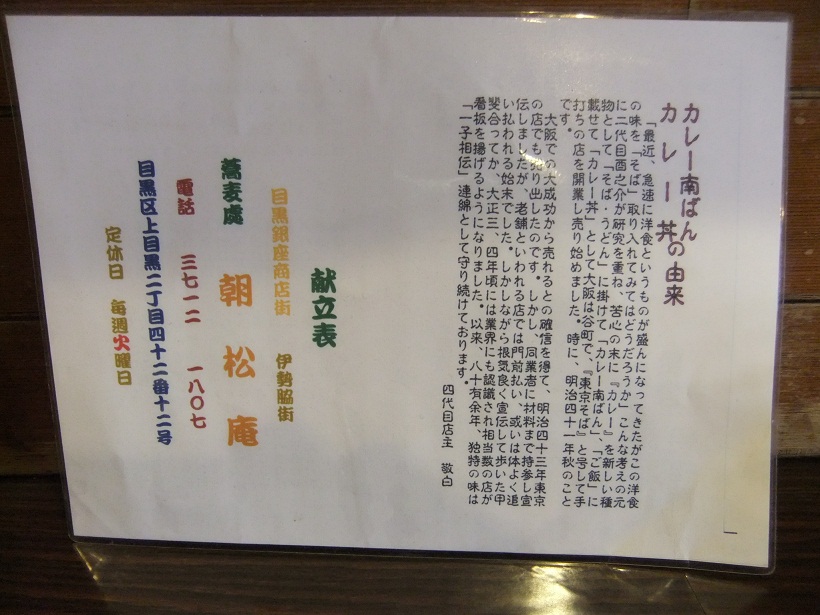 カレー南ばん
カレー丼の由来
「最近、急速に洋食というものが盛んになってきたがこの洋食
の味を「そば」取り入れてみてはどうだろうか」こんな考えの元
に二代目酉之介が研究を重ね、苦心の末に『カレー』を新しい種
物として「そば・うどん」に掛けて「カレー南ばん」、「ご飯」に
載せて「カレー丼」として大阪は谷町で、『東京そば』と号して手
打ちの店を開業し売り始めました。時に、明治四十一年秋のこと
です。
大阪での大成功から売れるとの確信を得て、明治四十三年東京
の店でも売り出したのです。しかし、同業者に材料まで持参し宣
伝しましたが、老舗といわれる店では門前払い、或いは体よく追
い払われる始末でした。しかしながら根気良く宣伝して歩いた甲
斐合ってか、大正三、四年頃には業界にも認識され相当数の店が
看板を揚げるようになりました。以来、八十有余年、独特の味は
「一子相伝」連綿として守り続けております。
四代目店主 敬白
献立表
目黒銀座商店街 伊勢脇街
蕎麦處 朝松庵
電話 三七一二 一八〇七
目黒区上目黒二丁目四十二番十二号
定休日 毎週火曜日